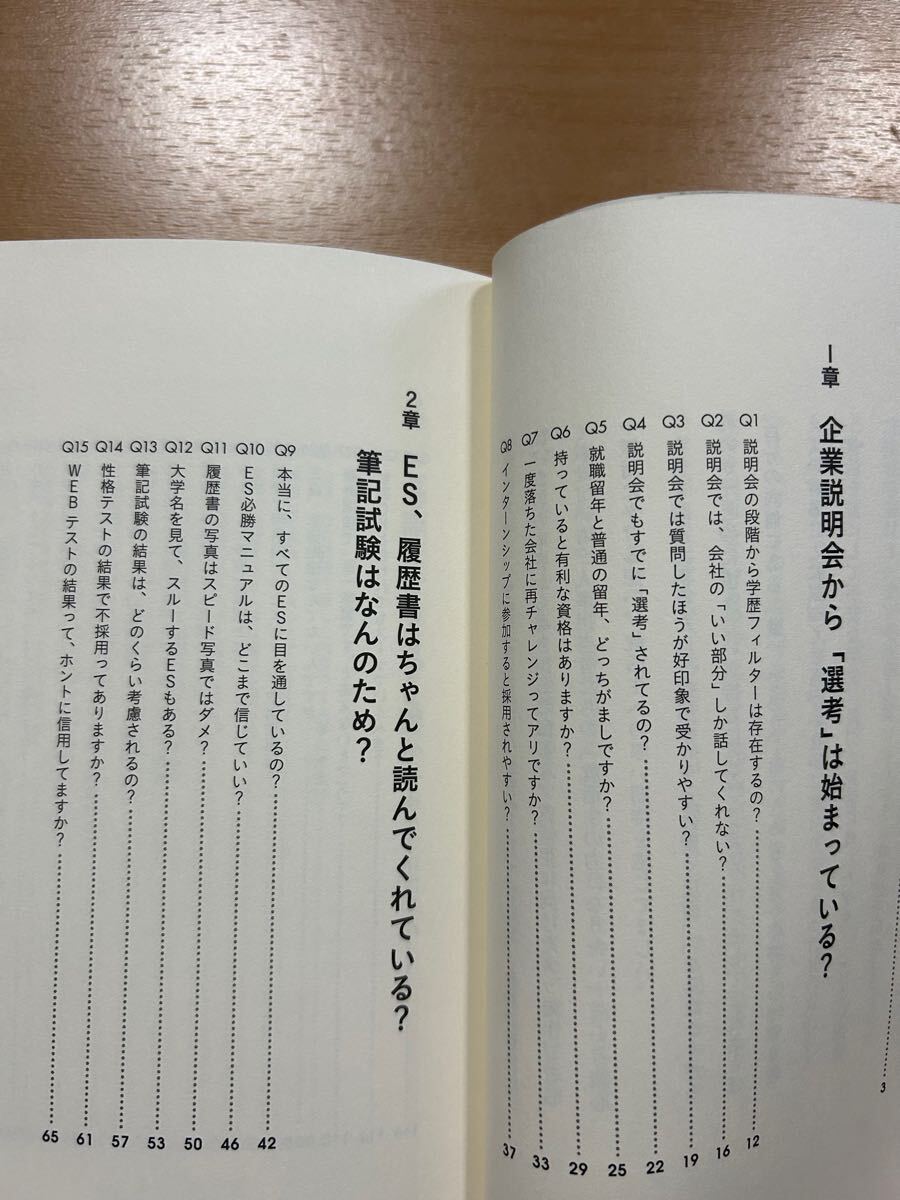 3
1章 企業説明会から「選考」は始まっている？
Q1 説明会の段階から学歴フィルターは存在するの？ 12
Q2 説明会では、会社の「いい部分」しか話してくれない？ 16
Q3 説明会では質問したほうが好印象で受かりやすい？ 19
Q4 説明会でもすでに「選考」されてるの？ 22
Q5 就職留年と普通の留年、どっちがましですか？ 25
Q6 持っていると有利な資格はありますか？ 29
Q7 一度落ちた会社に再チャレンジってアリですか？ 33
Q8 インターンシップに参加すると採用されやすい？ 37
2章 ES、履歴書はちゃんと読んでくれている？
筆記試験はなんのため？
Q9 本当に、すべてのESに目を通しているの？ 42
Q10 ES必勝マニュアルは、どこまで信じていい？ 46
Q11 履歴書の写真はスピード写真ではダメ？ 50
Q12 大学名を見て、スルーするESもある？ 53
Q13 筆記試験の結果は、どのくらい考慮されるの？ 57
Q14 性格テストの結果で不採用ってありますか？ 61
Q15 WEBテストの結果って、ホントに信用してますか？ 65